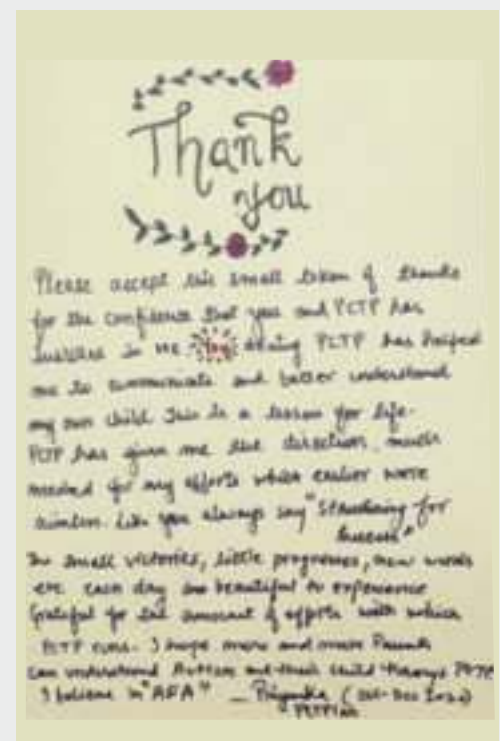 Thank
you
Please accept this small token of thanks
for the confidence that you and PCTP has
in me. doing PCTP has helped
me to communicate and better understand
my own child. This is a lesson for life.
PCTP has given me the direction, much
needed for my efforts which earlier were
aimless. Like you always say "Structuring for
Success"
The small victories, little progresses, new words
etc each day are beautiful to experience
Grateful for the amount of efforts with which
PCTP runs. I hope more and more Parents
can understand Autism and their child through PCTP
I believe in "AFA" _ Priyanka (Oct-Dec